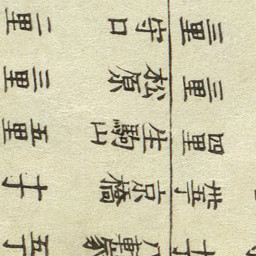 八軒家 五丁
四里
京橋 十丁
三里
生駒山 五里
三里
松原 三里
守口 二里